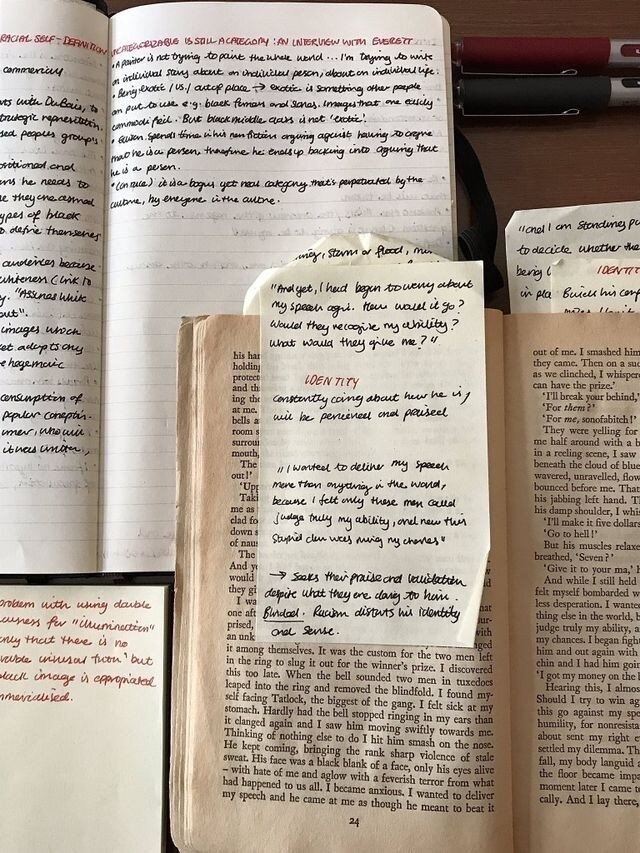 RACIAL SELF-DEFINITION
commercial
with DuBois, to
strategic representation.
peoples groups
positioned and
he needs to
types of black
to define themselves
audiences because
whiteness (link to
"Assumes white
out".
images which
adopts any
hegemonic
consumption of
popular conception
UNCATEGORIZABLE IS STILL A CATEGORY: AN INTERVIEW WITH EVERETT
• A painter is not trying to paint the whole world ... I'm trying to write
an individual story about an individual person, about an individual life.
• Being exotic / us / out of place → exotic is something other people
can put to use e.g. black farmers and slaves. Images that are easily
commodified. But black middle class is not 'exotic'.
• Ellison. Spends time in his non fiction arguing against having to argue
that he is a person, therefore he ends up backing into arguing that
he is a person.
• (on race) it is a bogus yet real category that's perpetuated by the
culture, by everyone in the culture.
storm or flood,
"And yet, I had begun to worry about
my speech again. How would it go?
Would they recognise my ability?
What would they give me?"
IDENTITY
constantly caring about how he is,
will be perceived and praised
"I wanted to deliver my speech
more than anything in the world,
because I felt only these men could
judge truly my ability, and now this
stupid clown was ruining my chances"
→ Seeks their praise and validation
despite what they are doing to him.
Blinded. Racism distorts his identity
and sense.
"and I am standing
to decide whether the
being
IDENTITY
in place
problem with using double
consciousness for "illumination"
only that there is no
universal truth, but
black image is appropriated
commercialised.
his
holding
protec
and th
ing the
at me.
bells a
room
surrou
mouth,
The
out!'
'Upp
Taki
me as
clad fo
down s
of naus
The
And ye
would
they gi
I wa
one aft
prised,
an unk
it among themselves. It was the custom for the two men left
in the ring to slug it out for the winner's prize. I discovered
this too late. When the bell sounded two men in tuxedoes
leaped into the ring and removed the blindfold. I found my-
self facing Tatlock, the biggest of the gang. I felt sick at my
stomach. Hardly had the bell stopped ringing in my ears than
it clanged again and I saw him moving swiftly towards me.
Thinking of nothing else to do I hit him smash on the nose.
He kept coming, bringing the rank sharp violence of stale
sweat. His face was a black blank of a face, only his eyes alive
– with hate of me and aglow with a feverish terror from what
had happened to us all. I became anxious. I wanted to deliver
my speech and he came at me as though he meant to beat it
24
out of me. I smashed him
they came. Then on a sud
as we clinched, I whispere
can have the prize.'
'I'll break your behind,'
'For them?'
'For me, sonofabitch!'
They were yelling for
me half around with a b
in a reeling scene, I saw
beneath the cloud of blue
wavered, unravelled, flow
bounced before me. That
his jabbing left hand. Th
his damp shoulder, I whis
'I'll make it five dollars
'Go to hell!'
But his muscles relaxe
breathed, 'Seven?'
'Give it to your ma,'
And while I still held
felt myself bombarded w
less desperation. I wanted
thing else in the world, b
judge truly my ability, a
my chances. I began fight
him and out again with
chin and I had him goin
'I got my money on the
Hearing this, I almost
Should I try to win aga
this go against my spee
humility, for nonresista
about sent my right ey
settled my dilemma. Th
fall, my body languid a
the floor became impa
moment later I came t
cally. And I lay there,